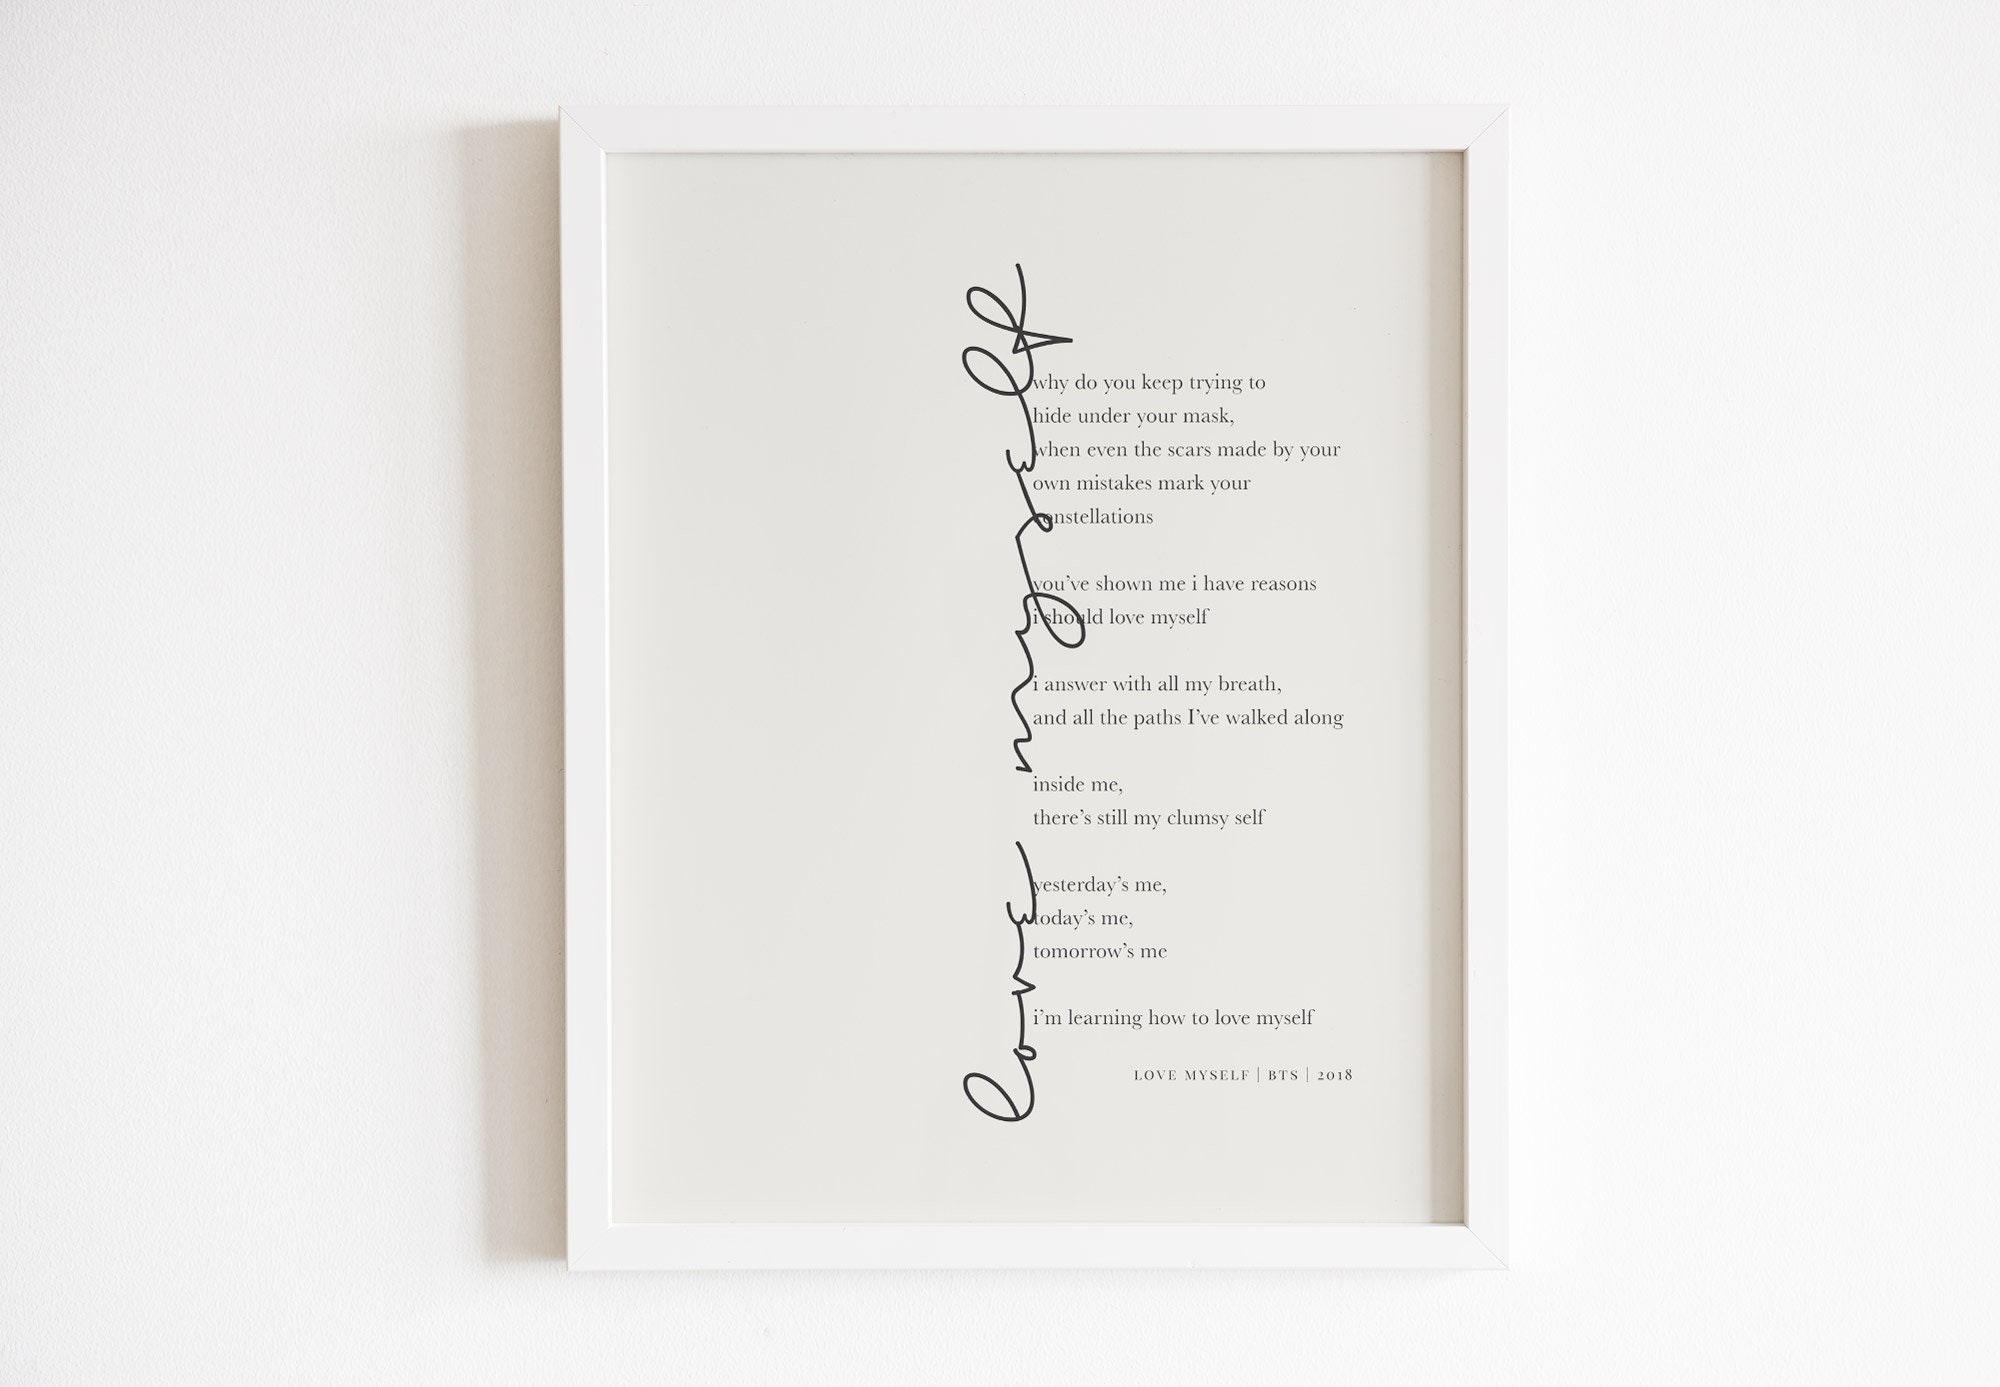 love myself
why do you keep trying to
hide under your mask,
when even the scars made by your
own mistakes mark your
constellations
you've shown me i have reasons
i should love myself
i answer with all my breath,
and all the paths I've walked along
inside me,
there's still my clumsy self
yesterday's me,
today's me,
tomorrow's me
i'm learning how to love myself
LOVE MYSELF | BTS | 2018